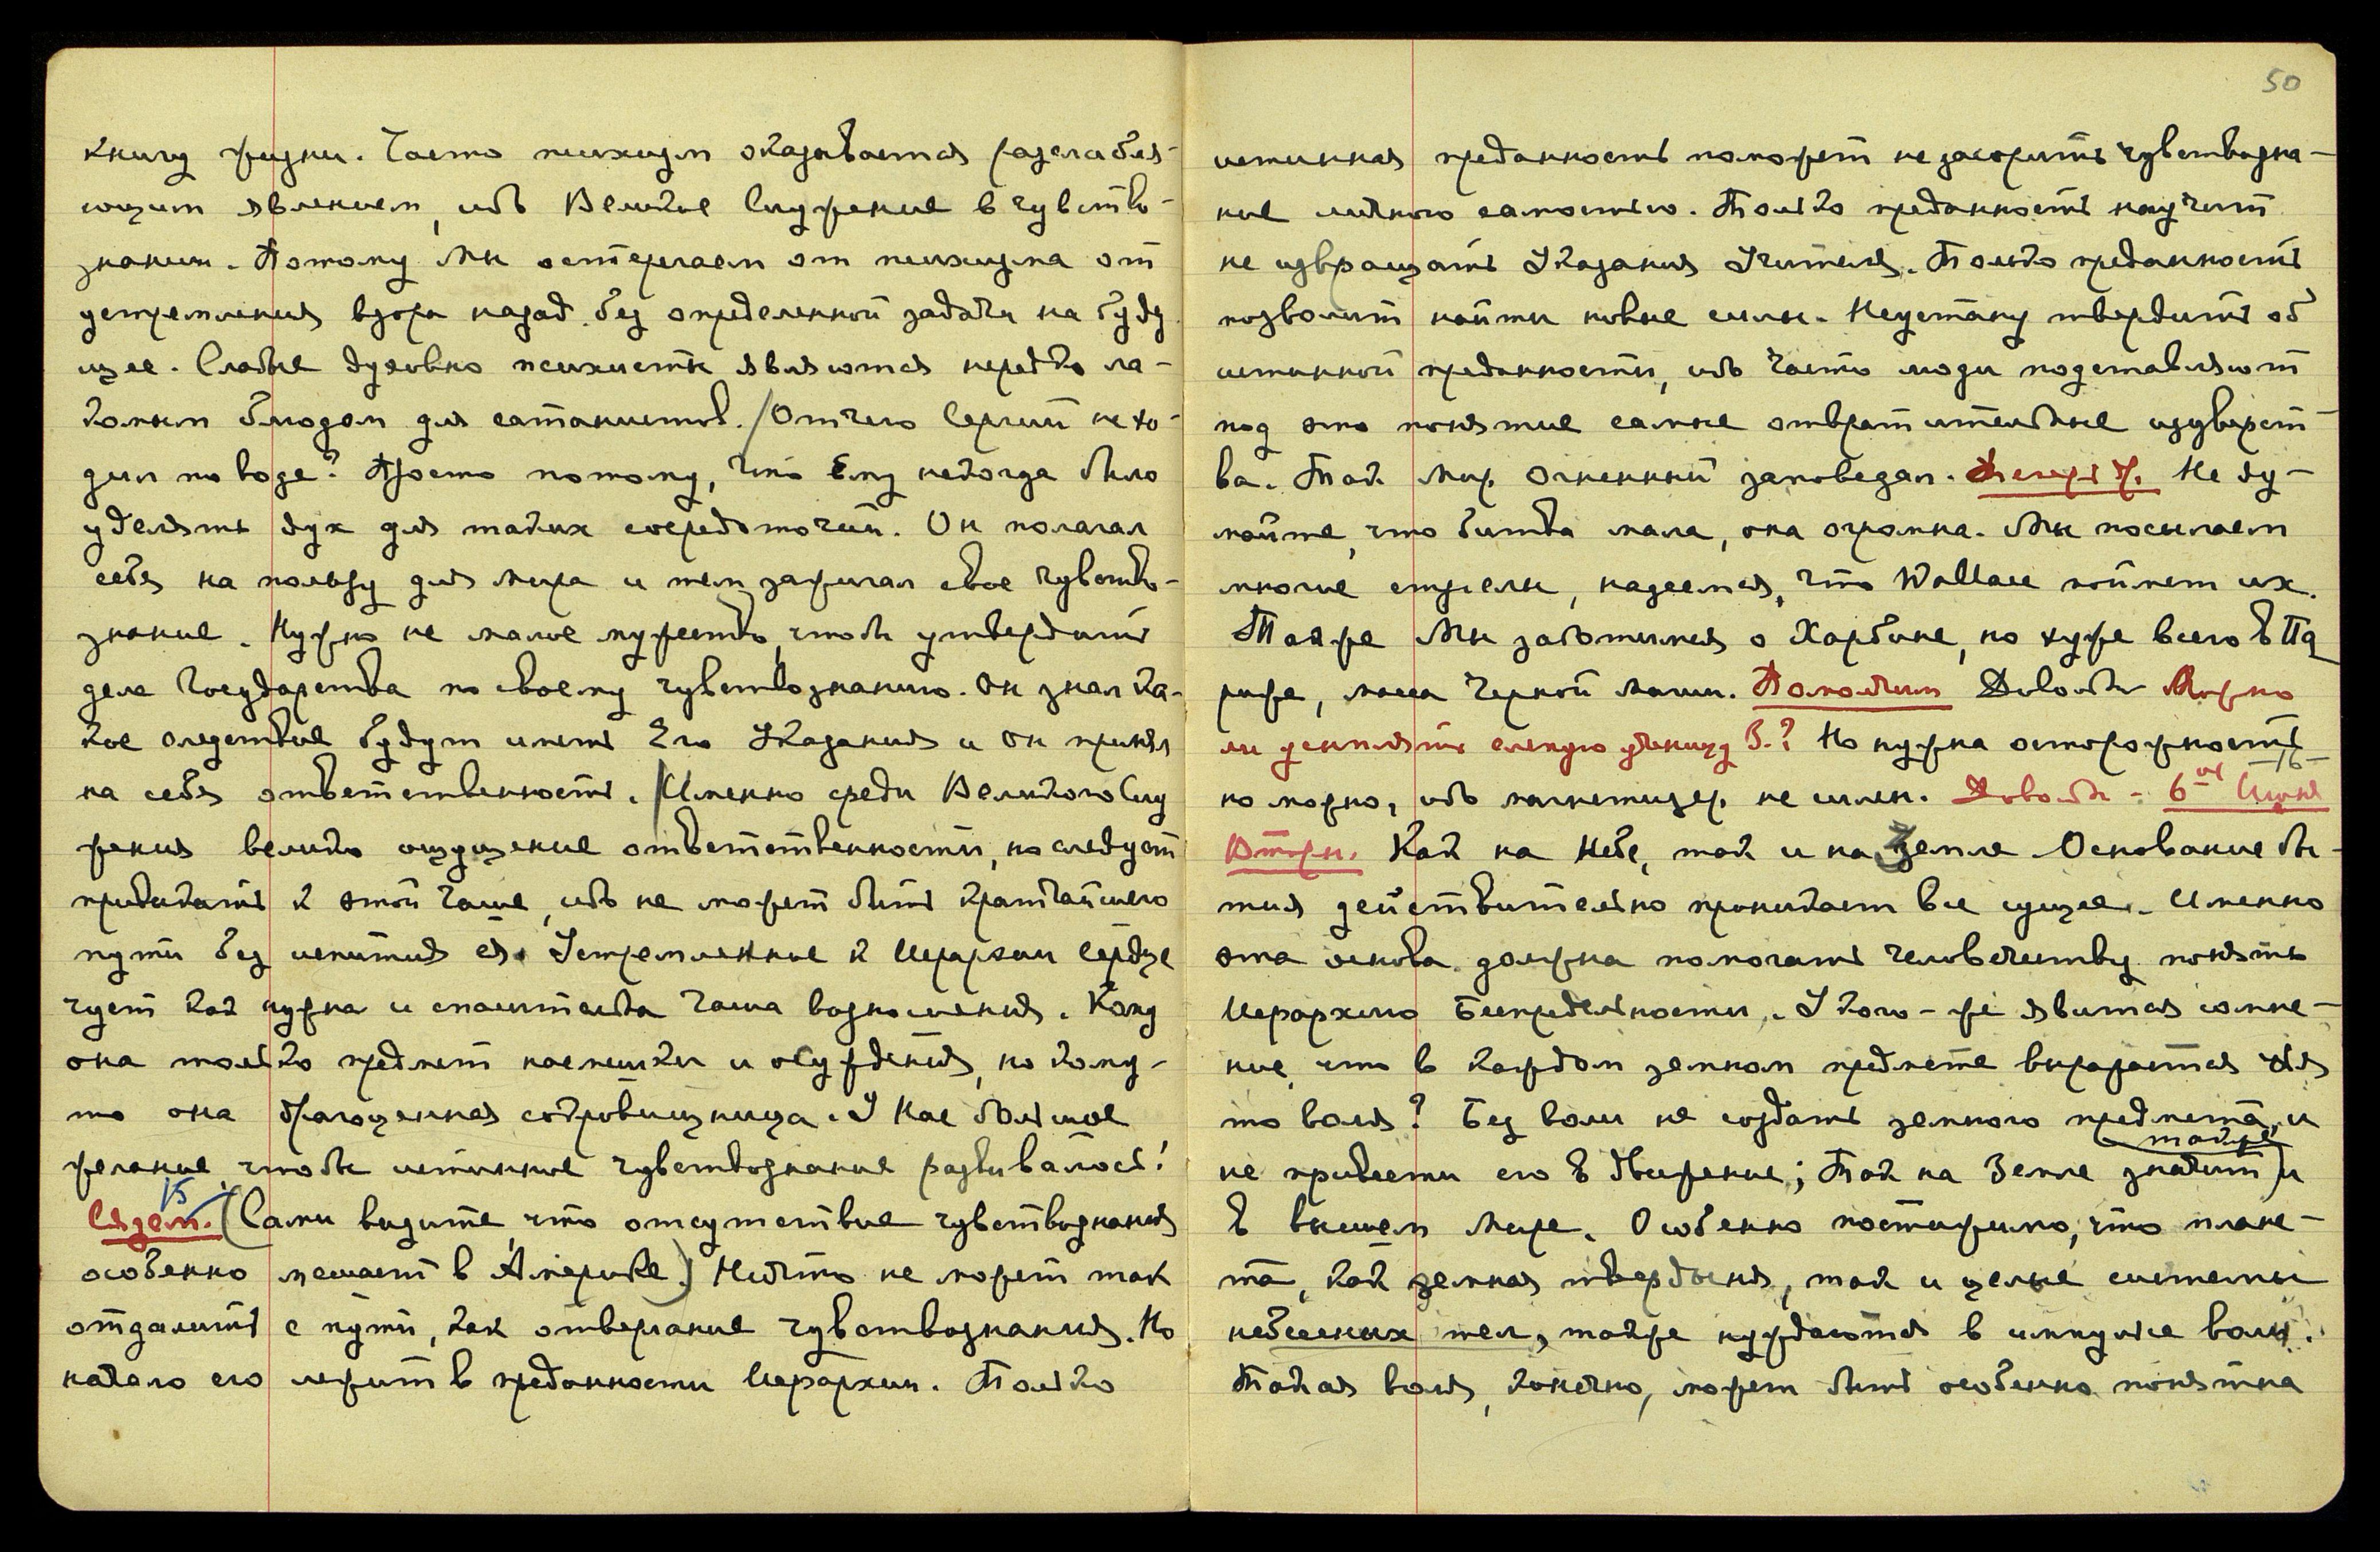 книгу жизни. Часто психизм оказывается разслабля-
ющим явлением, ибо Великое Служение в чувство-
знании. Потому Мы остерегаем от психизма от
устремления взора назад без определенной задачи на буду
щее. Слабые духовно психисты являются нередко ла-
комым блюдом для сатанистов. / Отчего Сергий не хо-
дил по воде? Просто потому, что Ему некогда было
уделять дух для таких сосредоточий. Он полагал
себя на пользу для мира и тем зажигал свое чувство-
знание. Нужно не малое мужество, чтобы утвердить
дела Государства по своему чувствознанию. Он знал ка-
кое следствие будут иметь Его Указания и Он принял
на себя ответственность. / Именно среди Великого Слу
жения велико ощущение ответственности, но следует
привыкать к этой чаше, ибо не может быть кратчайшего
пути без испития ея. Устремленное к Иерархии сердце
чует как нужна и спасительна чаша возношения. Кому
она только предмет насмешки и осуждения, но кому-
то она драгоценная сокровищница. У Нас большое
желание, чтобы истинное чувствознание развивалось!
15
Сядем. (Сами видите, что отсутствие чувствознания
особенно мешает в Америке.) Ничто не может так
отдалить с пути, как отвергание чувствознания. Но
начало его лежит в преданности Иерархии. Только
50
истинная преданность поможет не засорить чувствозна-
ние личного самостью. Только преданность научит
не извращать Указания Учителя. Только преданность
позволит найти новые силы. Неустану твердить об
истинной преданности, ибо часто люди подставляют
под это понятие самые отвратительные изуверст-
ва. Так Мир Огненный заповедал. Теперь У. Не ду-
майте, что битва мала, она огромна. Мы посылаем
многие стрелы, надеемся, что Wallace поймет их.
Также Мы заботимся о Харбине, но хуже всего в Па
риже, масса черной магии. Помолчим Довольно Можно
ли усыплять слепую ученицу В.? Но нужна осторожность
-16-
но можно, ибо магнетизер не силен. Довольно - 6ое Июня
Вторн. Как на Небе, так и на Земле. Основание бы-
тия действительно проникает все сущее. Именно
эта основа должна помогать человечеству понять
Иерархию Беспредельности. У кого-же явится сомне-
ние, что в каждом земном предмете выражается чья
то воля? Без воли не создать земного предмета и
также
не привести его в движение; Так на Земле значит и
в высшем Мире. Особенно постижимо, что плане-
та, как земная твердыня, так и целые системы
небесных тел, также нуждаются в импульсе воли.
Такая воля, конечно, может быть особенно понятна